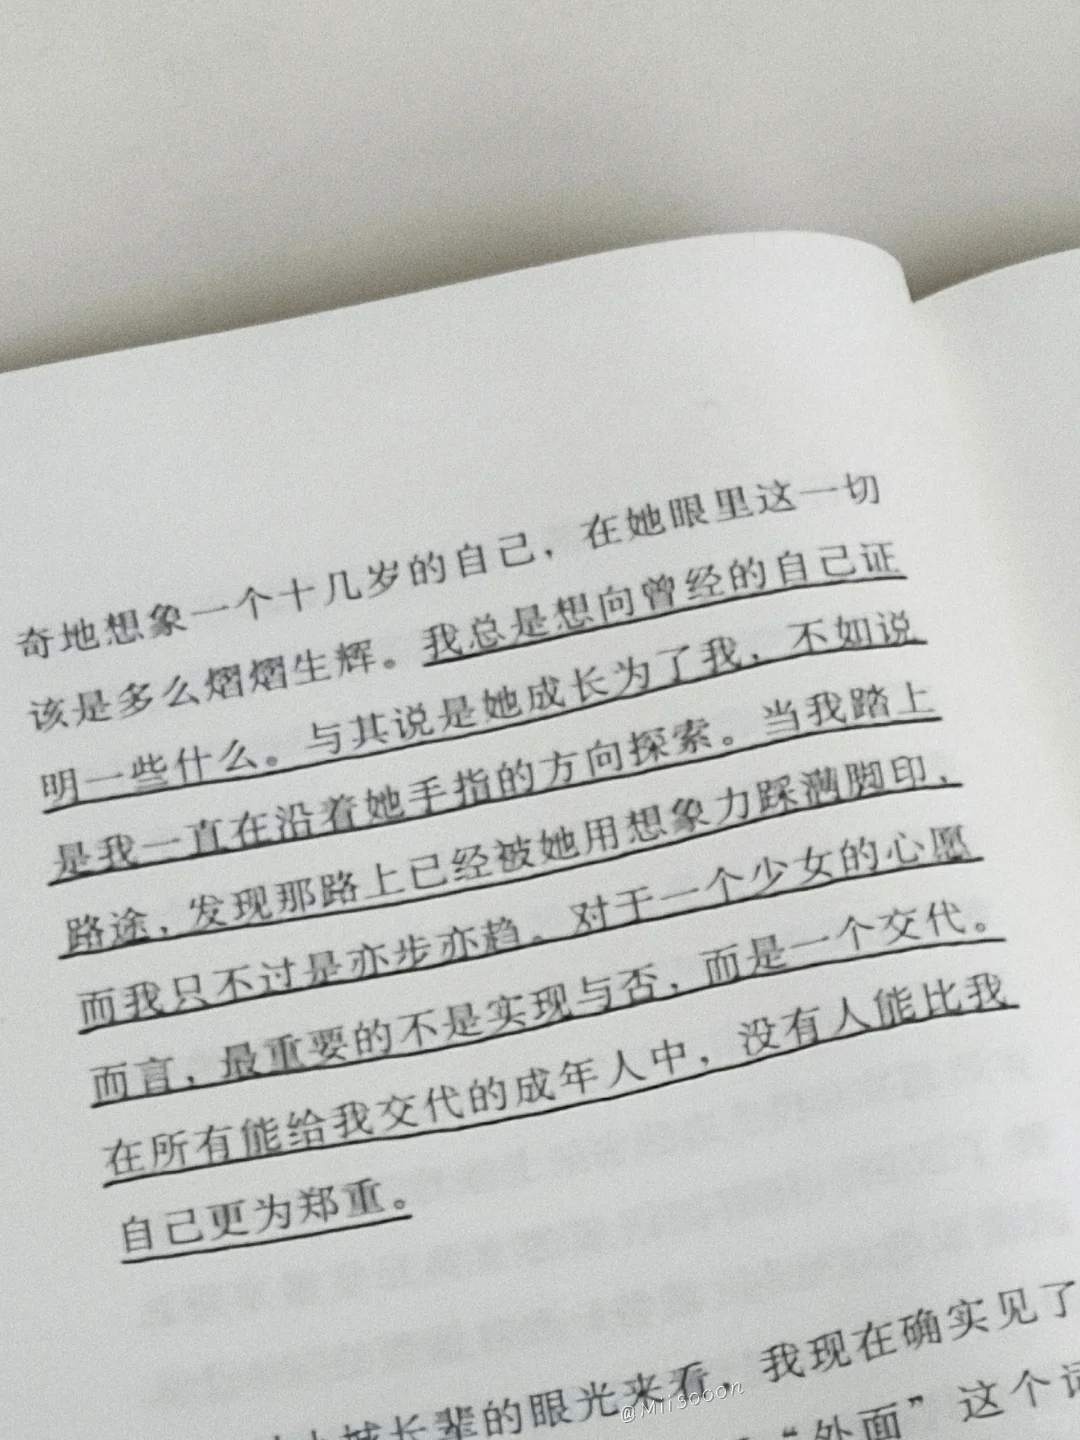 奇地想象一个十几岁的自己，在她眼里这一切
该是多么熠熠生辉。我总是想向曾经的自己证
明一些什么。与其说是她成长为了我，不如说
是我一直在沿着她手指的方向探索。当我踏上
路途，发现那路上已经被她用想象力踩满脚印，
而我只不过是亦步亦趋。对于一个少女的心愿
而言，最重要的不是实现与否，而是一个交代。
在所有能给我交代的成年人中，没有人能比我
自己更为郑重。
城长辈的眼光来看，我现在确实见了
“外面”这个词
@Mii3ooon